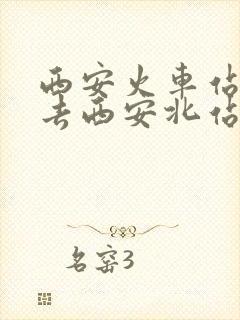 西安火車站
去西安北站
名窑3